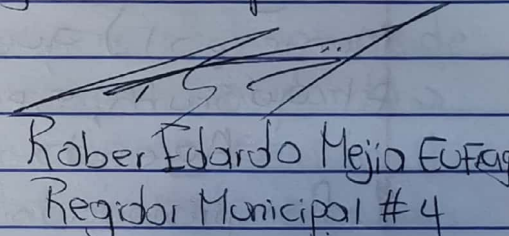 Rober Edardo Mejia Eufrag
Regidor Municipal # 4